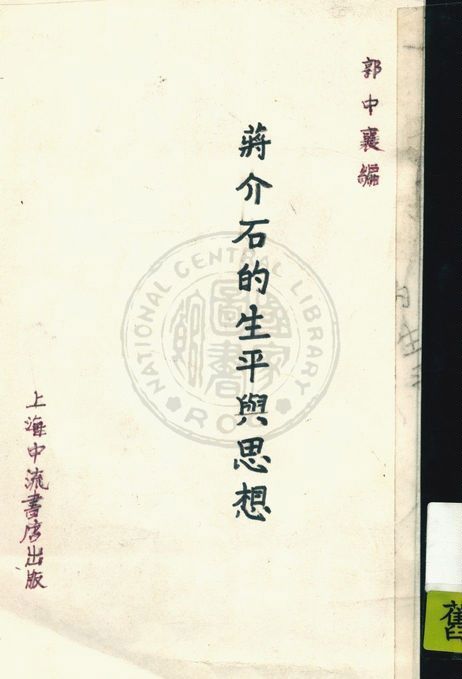 郭中襄編
蔣介石的生平與思想
上海中流書店出版
NATIONAL CENTRAL LIBRARY
R.O.C
國家圖書館
舊